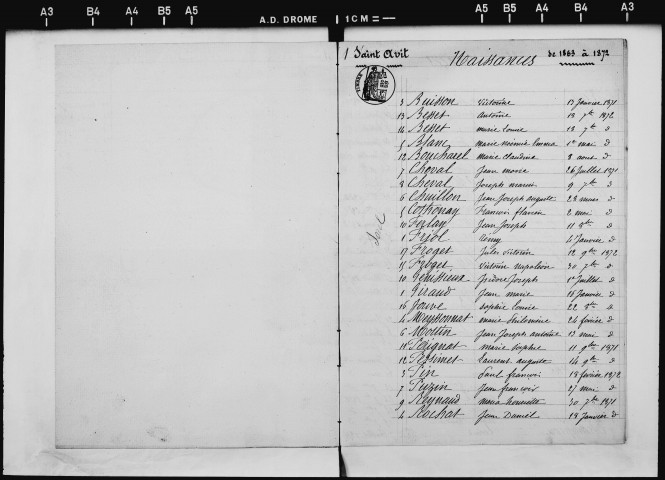 A3 B4 A4 B5 A5 A.D. DROME 1CM A5 B5 A4 B4 A3
1 Saint Avit Naissances de 1863 à 1872
3 Buisson Victorine 13 Janvier 1871
13 Besset Antoine 18 7bre 1872
14 Besset marie Louise 18 7bre d
5 Blanc marie Emma 1er mai d
12 Boucharel marie claudine 8 aout d
7 Choval Jean 26 Juillet 1871
8 Cheval Joseph 9 7bre d
6 Chuillon Jean Joseph auguste 28 mars d
5 François 2 mai d
10 Ferlay Jean Joseph 11 8bre d
1 Frjol Remy 4 Janvier d
17 Froget Jules Victorin 12 9bre 1872
15 Froget Victorine Napoléon 30 7bre d
10 Génissieux Isidore Joseph 1er Juillet d
1 Giraud Jean marie 16 Janvier d
16 Jouve Sophie Louise 22 8bre d
4 Meyssonnat marie Philomène 24 février d
6 Mottin Jean Joseph antoine 13 mai d
11 Peignat marie Sophie 11 9bre 1871
12 Laurent auguste 14 9bre d
3 Pin Paul françois 18 février 1872
7 Puzin Jean françois 27 mai d
9 Reynaud 30 7bre 1871
4 Rochat Jean Daniel 18 Janvier d